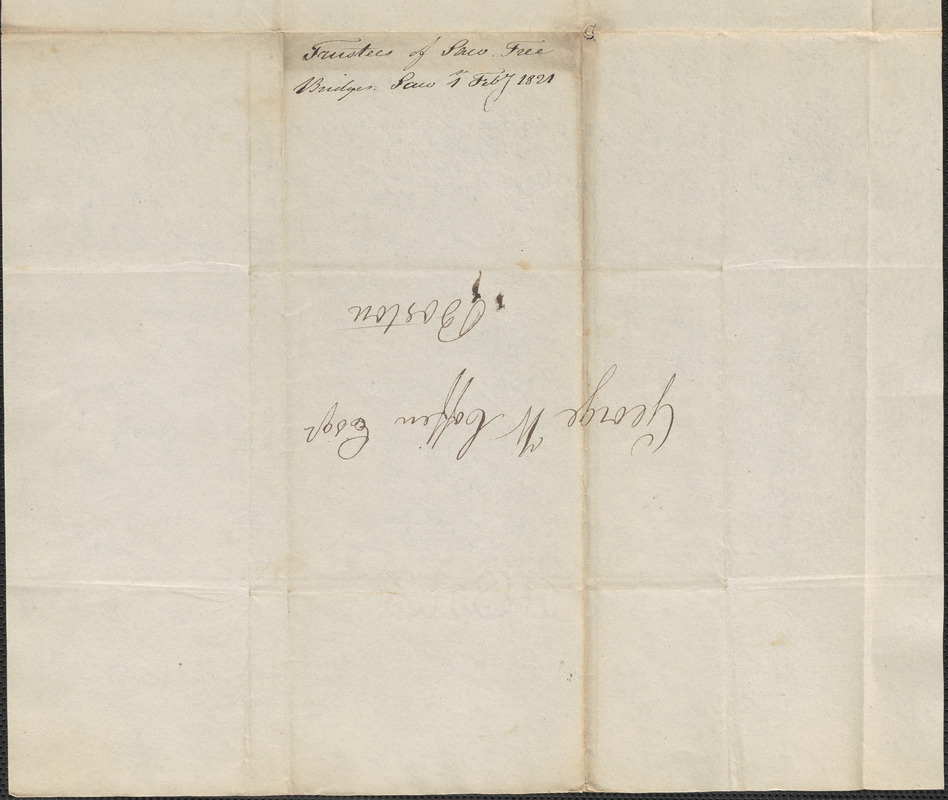 Trustees of Saco Free
Bridges. Saco 1st Feby 1821
George W Coffin Esqr
Boston